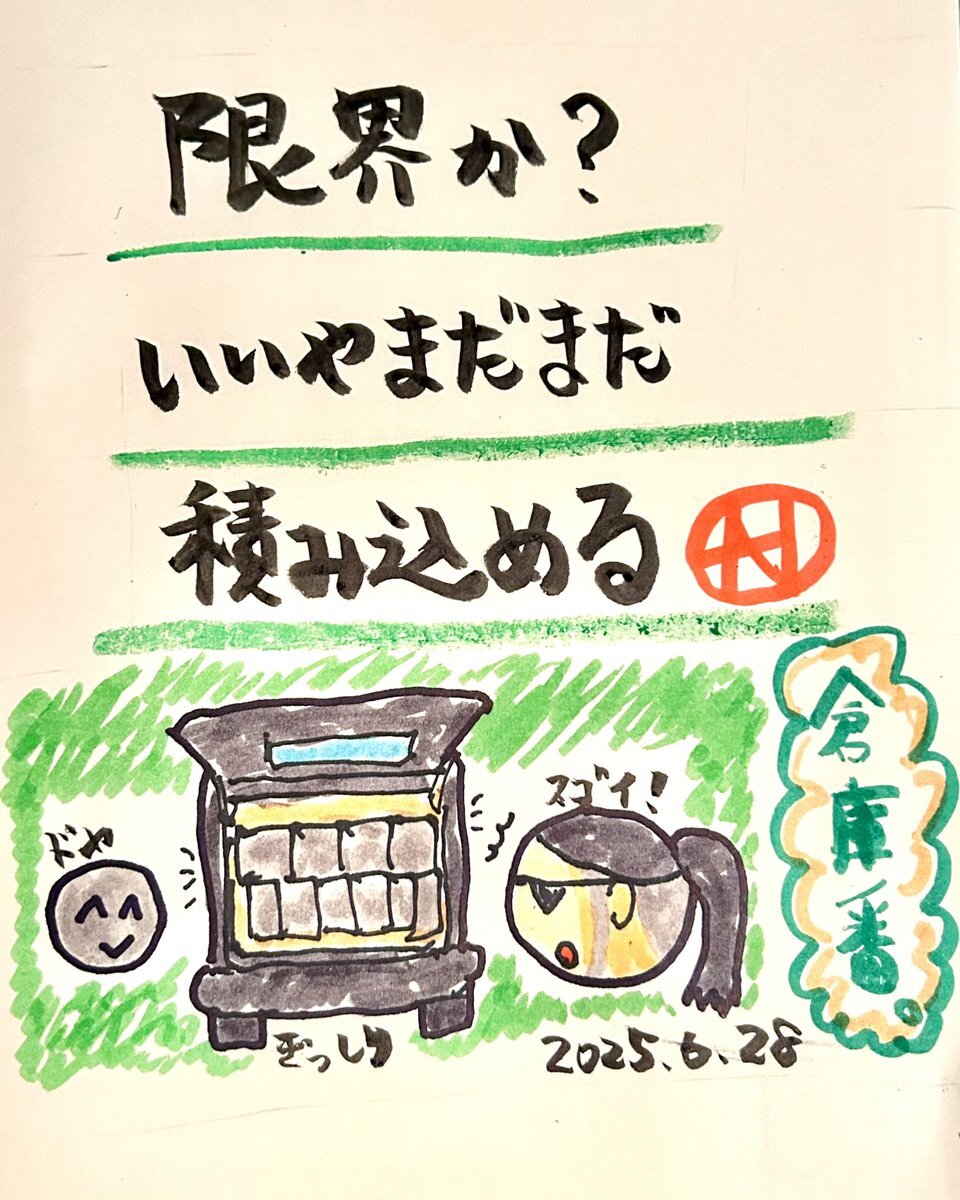 限界か?
いいやまだまだ
積み込める
倉庫番。
ドヤ
スゴイ!
ぎっしり
2025.6.28